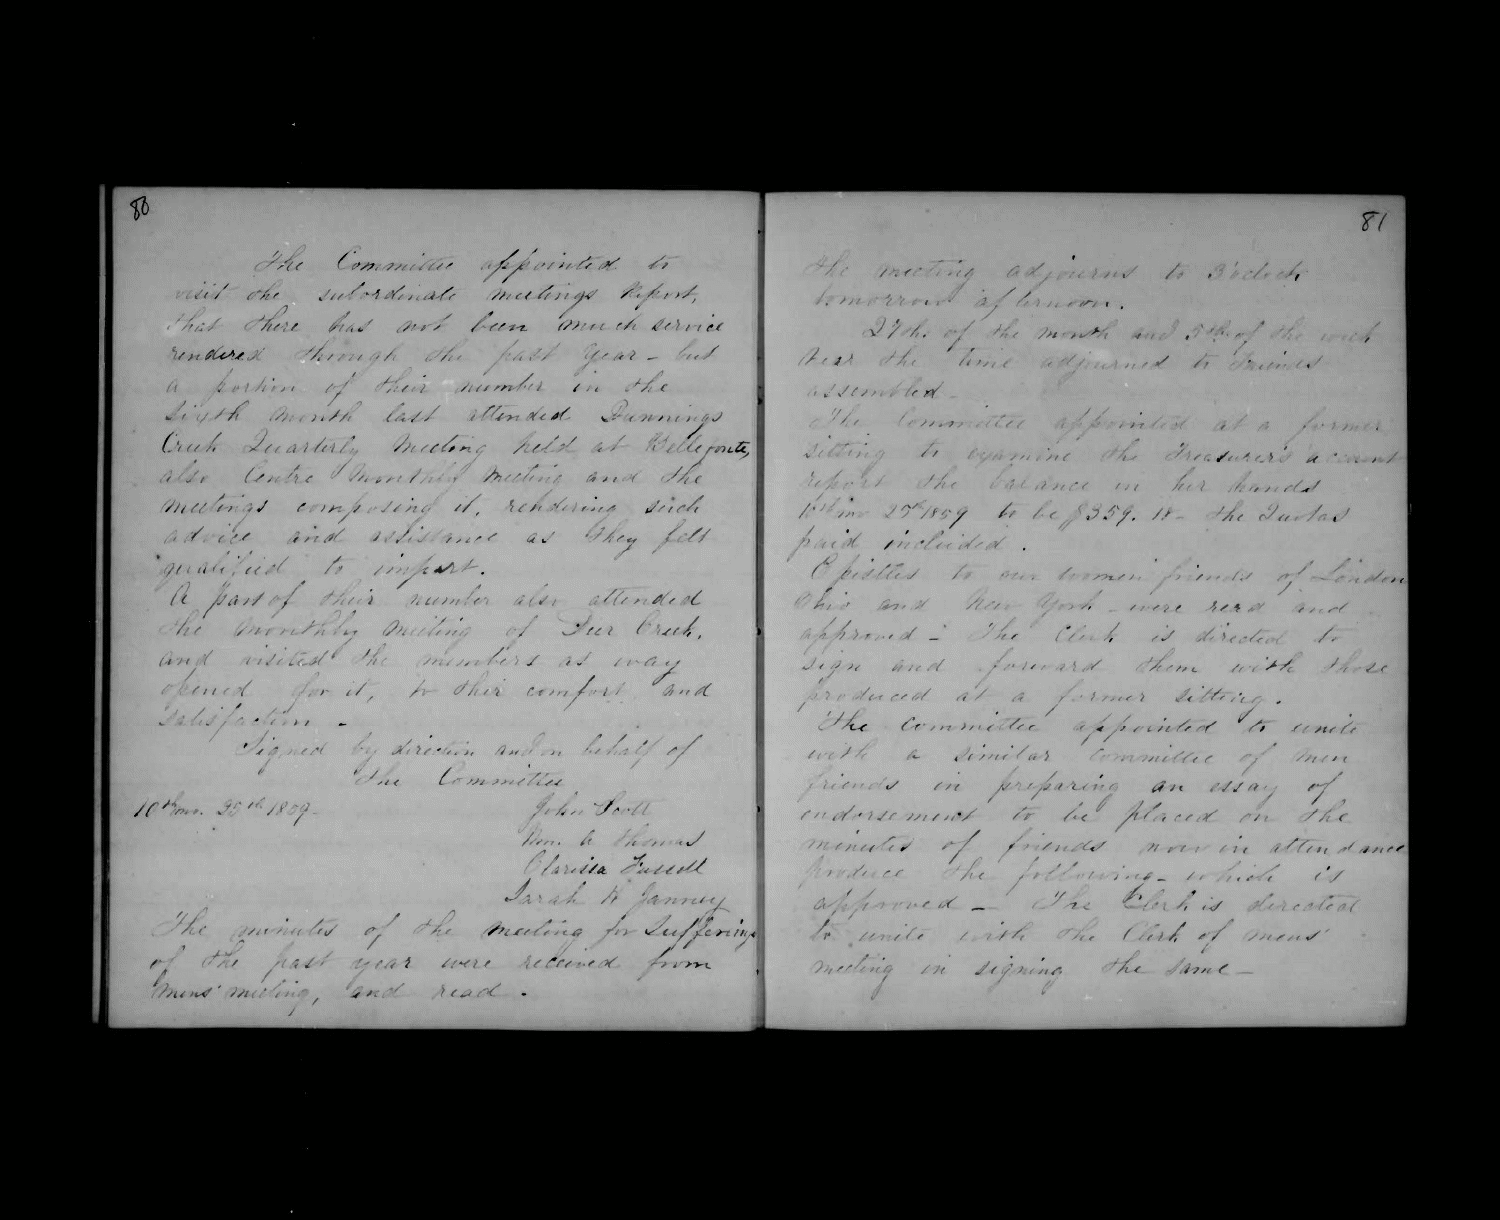 80
The Committee appointed to
visit the subordinate meetings Report,
that there has not been much service
rendered through the past year - but
a portion of their number in the
sixth month last attended Dunnings
Creek Quarterly Meeting held at Bellefonte,
also Centre Monthly Meeting and the
meetings composing it, rendering such
advice and assistance as they felt
qualified to impart.
A part of their number also attended
the Monthly Meeting of Deer Creek,
and visited the members as way
opened for it, to their comfort and
satisfaction -
Signed by direction and on behalf of
the Committee
10th mo. 25th 1859- John Scott
Wm. A Thomas
Clarissa Fussell
Sarah H Janney
The minutes of the meeting for Sufferings
of the past year were received from
mens' meeting, and read.
81
The meeting adjourns to 3 oclock
tomorrow afternoon.
27th. of the month and 5th. of the week
Near the time adjourned to Friends
assembled -
The Committee appointed at a former
sitting to examine the Treasurers account
report the balance in her hands
10th mo 25th 1859 to be $359. 18 - the Quotas
paid included.
Epistles to our women friends of London
Ohio and New York - were read and
approved - The Clerk is directed to
sign and forward them with those
produced at a former sitting.
The committee appointed to unite
with a similar committee of men
friends in preparing an essay of
endorsement to be placed on the
minutes of friends now in attendance
produce the following - which is
approved - The Clerk is directed
to unite with the Clerk of mens'
meeting in signing the same -